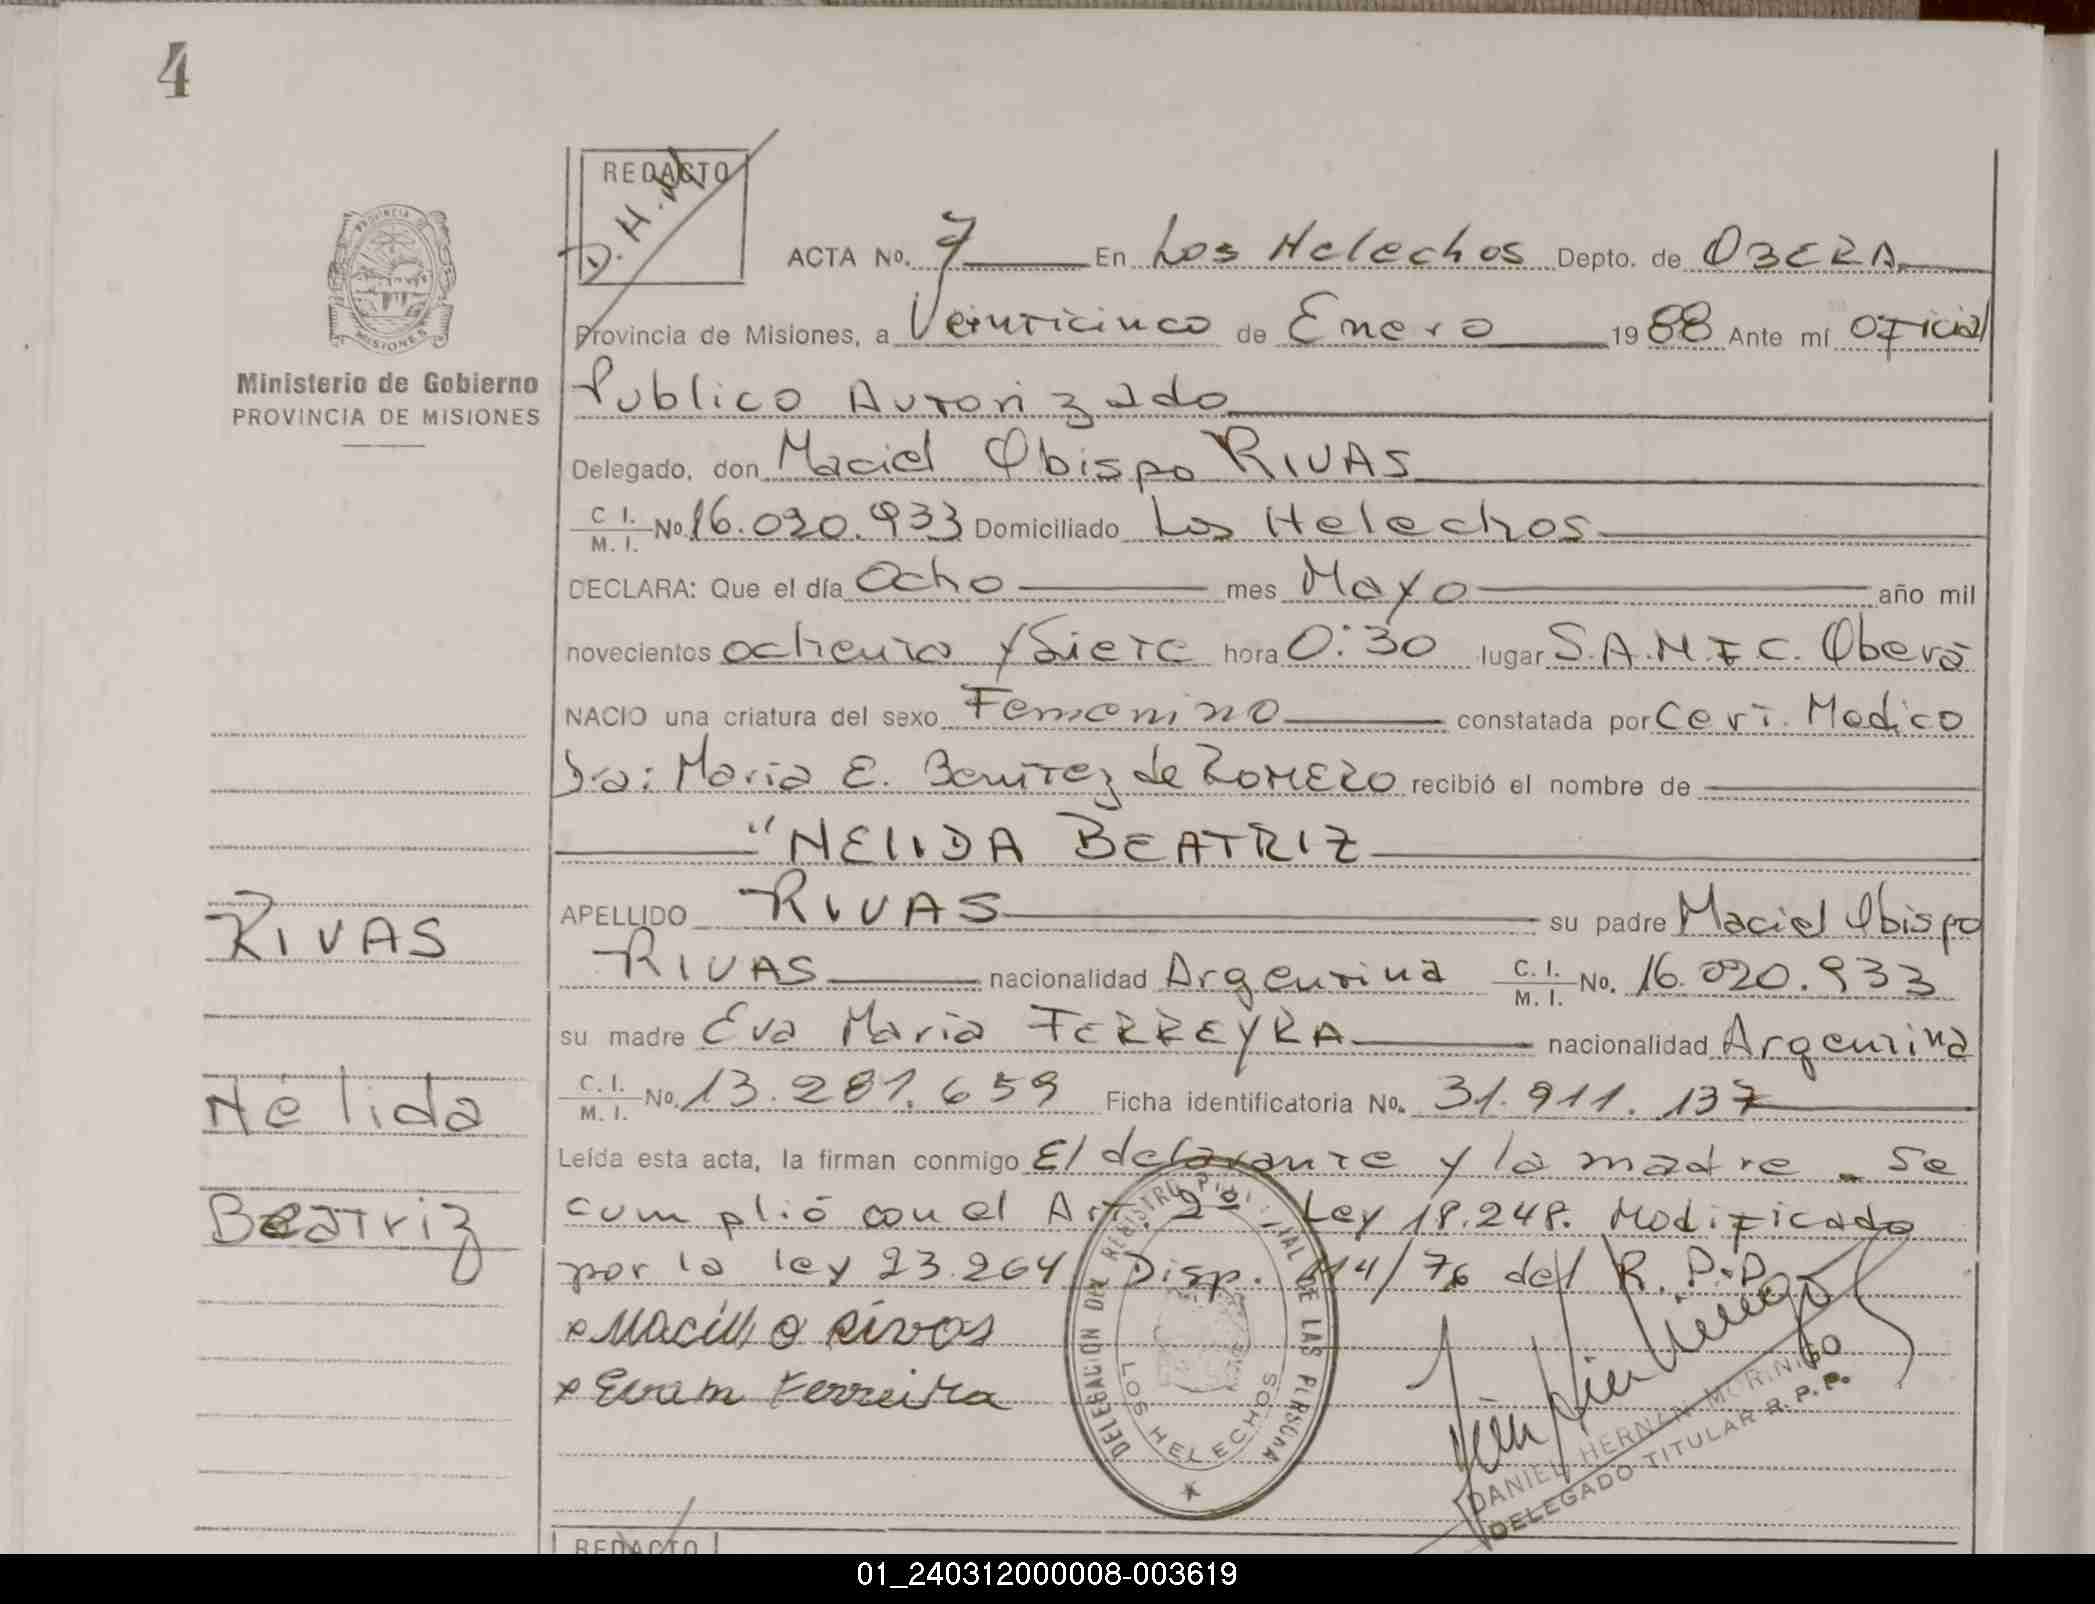 4
REDACTO
D.H.M
PROVINCIA DE
MISIONES
Ministerio de Gobierno
PROVINCIA DE MISIONES
ACTA No. 7 En Los Helechos Depto. de OBERA
Provincia de Misiones, a Veinticinco de Enero 1988 Ante mí Oficial
Publico Autorizado
Delegado, don Maciel Obispo RIVAS
C. I. / M. I. No. 16.020.933 Domiciliado Los Helechos
DECLARA: Que el día Ocho mes Mayo año mil
novecientos ochenta y Siete hora 0:30 lugar S.A.M.I.C. Oberá
NACIO una criatura del sexo Femenino constatada por Cert. Medico
Dra: Maria E. Benitez de ROMERO recibió el nombre de
"NELIDA BEATRIZ
APELLIDO RIVAS su padre Maciel Obispo
RIVAS nacionalidad Argentina C. I. / M. I. No. 16.020.933
su madre Eva Maria FERREYRA nacionalidad Argentina
C. I. / M. I. No. 13.281.659 Ficha identificatoria No. 31.911.137
Leída esta acta, la firman conmigo El declarante y la madre. Se
cumplió con el Art. 2º - Ley 18.248. Modificado
por la ley 23.264 Disp. 114/76 del R.P.P.
Maciel O Rivas
Evam Ferreira
RIVAS
Nélida
Beatriz
DELEGACION DEL REGISTRO PROVINCIAL DE LAS PERSONAS
LOS HELECHOS
DANIEL HERNAN MORINIGO
DELEGADO TITULAR R.P.P.
REDACTO
01_240312000008-003619